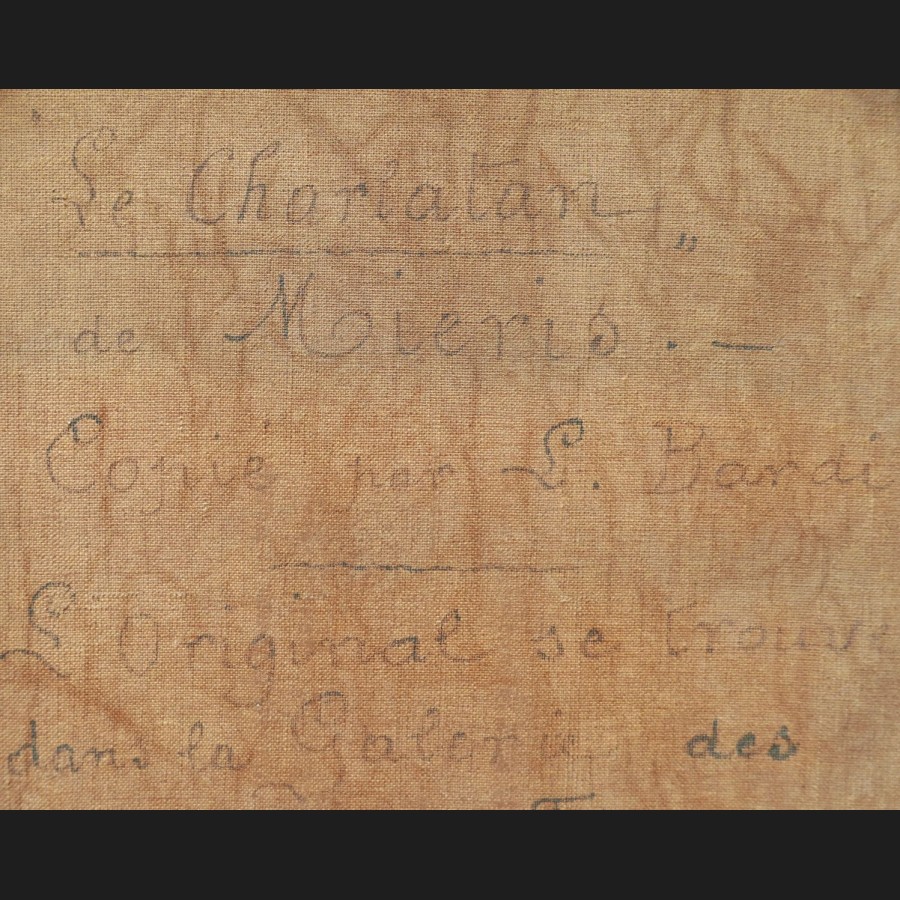 „ Le Charlatan „
de Mieris. —
Copié par L. Bardi
L'Original se trouve
dans la Galerie des